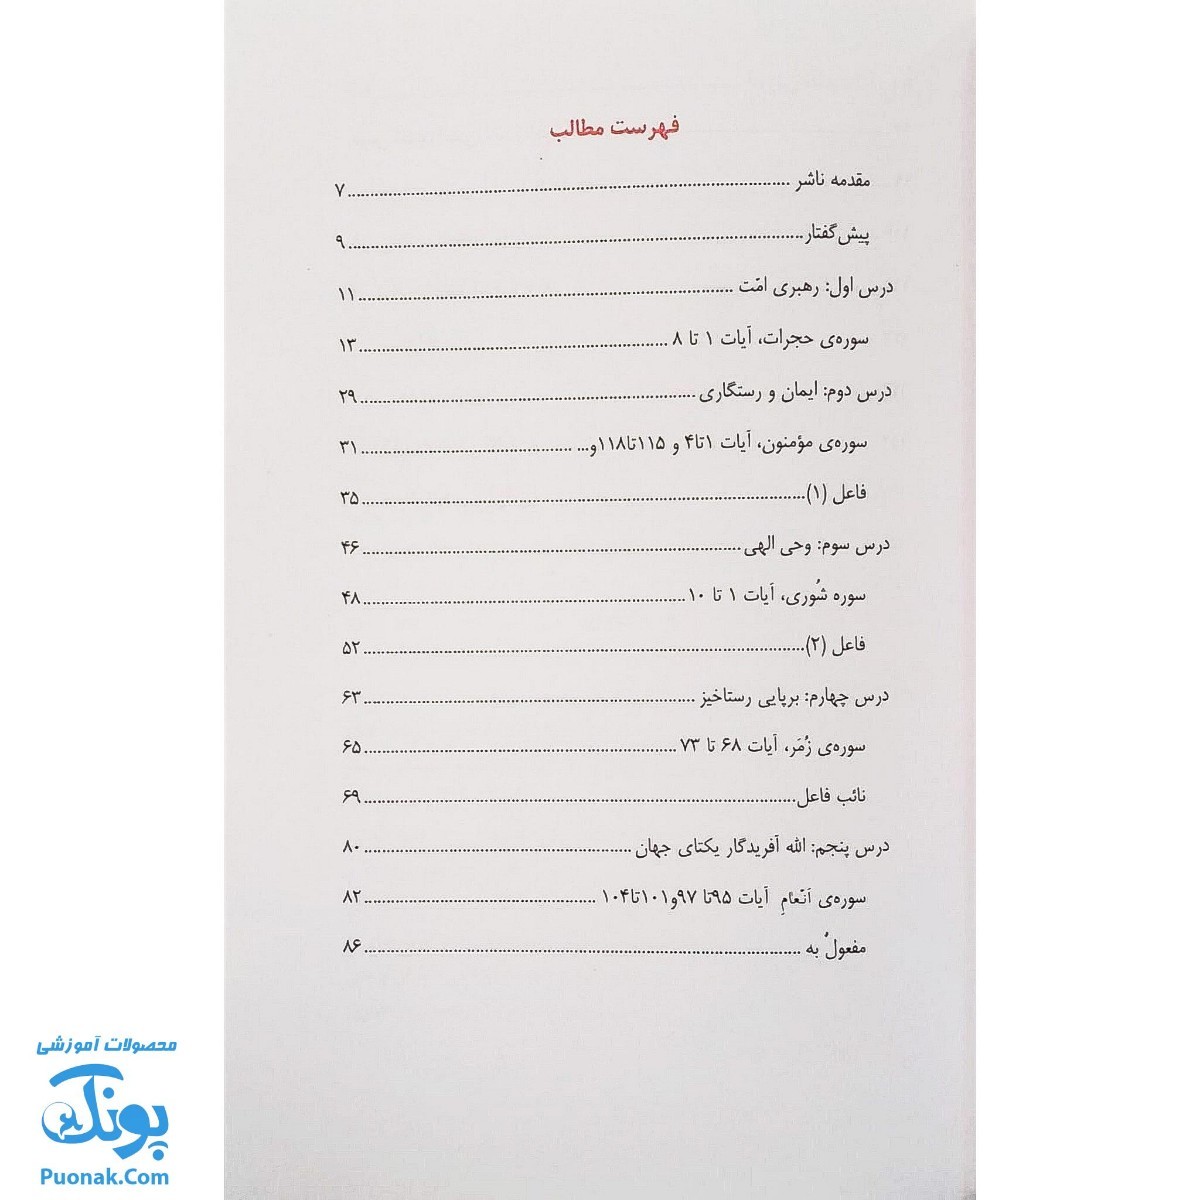 فهرست مطالب
مقدمه ناشر ........ ۷
پیش‌گفتار ........ ۹
درس اول: رهبری امّت ........ ۱۱
سوره‌ی حجرات، آیات ۱ تا ۸ ........ ۱۳
درس دوم: ایمان و رستگاری ........ ۲۹
سوره‌ی مؤمنون، آیات ۱تا۴ و ۱۱۵تا۱۱۸و... ........ ۳۱
فاعل (۱) ........ ۳۵
درس سوم: وحی الهی ........ ۴۶
سوره شُوری، آیات ۱ تا ۱۰ ........ ۴۸
فاعل (۲) ........ ۵۲
درس چهارم: برپایی رستاخیز ........ ۶۳
سوره‌ی زُمَر، آیات ۶۸ تا ۷۳ ........ ۶۵
نائب فاعل ........ ۶۹
درس پنجم: الله آفریدگار یکتای جهان ........ ۸۰
سوره‌ی اَنّعامِ آیات ۹۵تا ۹۷و۱۰۱تا۱۰۴ ........ ۸۲
مفعولٌ به ........ ۸۶
محصولات آموزشی
پونک
Puonak.Com